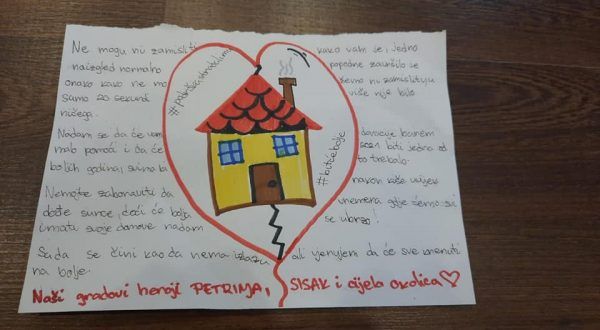 Ne mogu ni zamisliti kako vam je, jedno
naizgled normalno popodne završilo je
onako kako ne mo ni zamislit, u
samo 20 sekundi više nije bilo
ničega.
Nadam se da će vam
malo pomoći i da će 2021 biti jedna od
boljih godina, svima bi to trebalo.
Nemojte zaboraviti da nakon kiše uvijek
dođe sunce, doći će bolja vremena gdje ćemo svi
imati svoje domove nadam se ubrzo!
Sada se čini kao da nema izlaza ali vjerujem da će sve krenuti
na bolje.
#podrškastradalima
#bitćebolje
Naši gradovi heroji PETRINJA, SISAK i cijela okolica♡